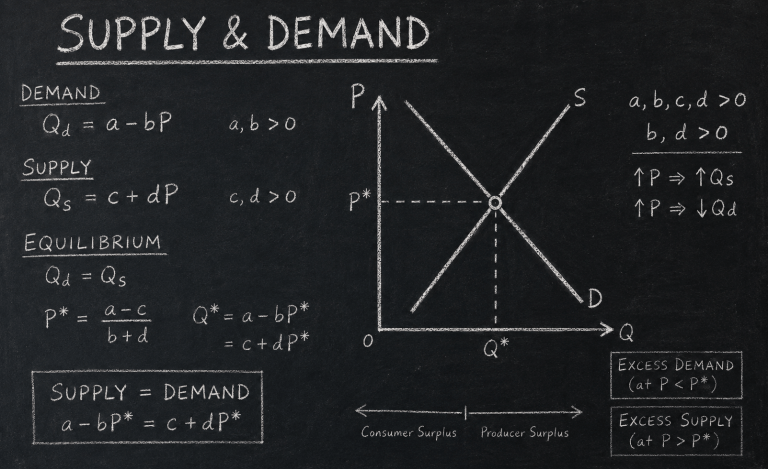 SUPPLY & DEMAND
DEMAND
Q_d = a - bP    a, b > 0
SUPPLY
Q_s = c + dP    c, d > 0
EQUILIBRIUM
Q_d = Q_s
P* = (a - c)/(b + d)    Q* = a - bP*
= c + dP*
SUPPLY = DEMAND
a - bP* = c + dP*
P
S
P*
D
O
Q*
Q
Consumer Surplus    Producer Surplus
a, b, c, d > 0
b, d > 0
↑P ⇒ ↑Q_s
↑P ⇒ ↓Q_d
EXCESS DEMAND
(at P < P*)
EXCESS SUPPLY
(at P > P*)